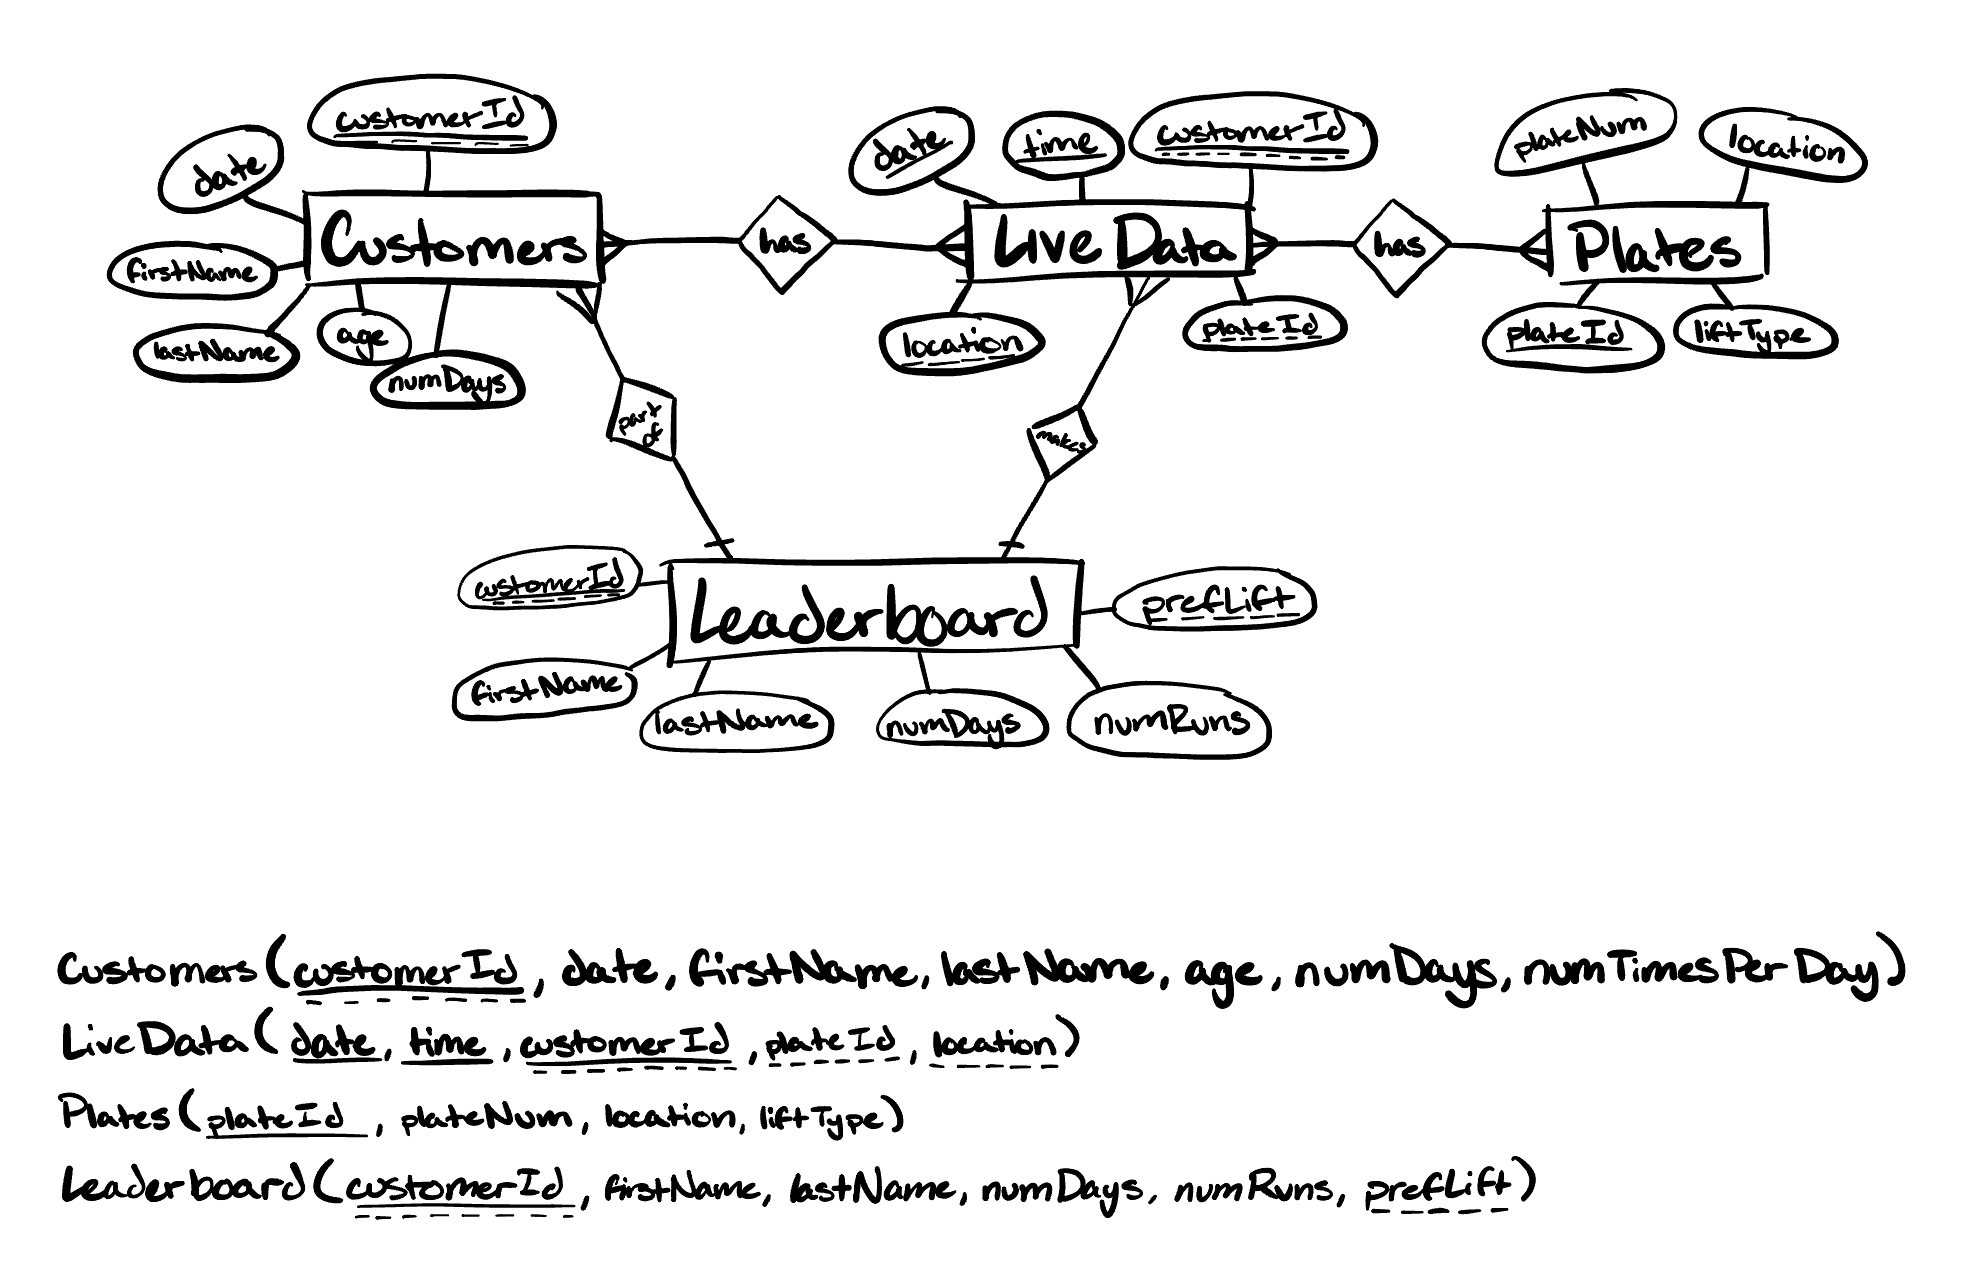 customerId
date
firstName
lastName
age
numDays
Customers
has
date
time
customerId
Live Data
location
plateId
has
plateNum
location
Plates
plateId
liftType
part of
makes
customerId
Leaderboard
prefLift
firstName
lastName
numDays
numRuns
Customers (customerId, date, firstName, lastName, age, numDays, numTimesPerDay)
LiveData (date, time, customerId, plateId, location)
Plates (plateId, plateNum, location, liftType)
Leaderboard (customerId, firstName, lastName, numDays, numRuns, prefLift)